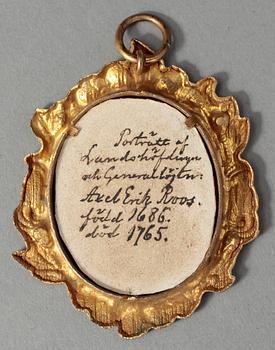 Porträtt af
Landshöfdingen
och Generallöjtn:
Axel Erik Roos.
född 1686.
död 1765.